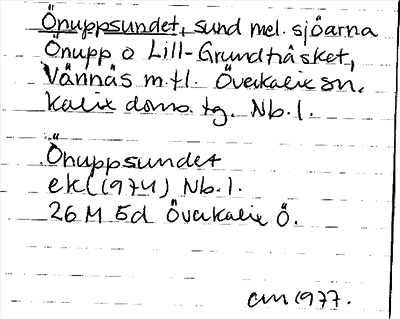 Önuppsundet, sund mel. sjöarna
Önupp o Lill-Grundträsket,
Vännäs m.fl. Överkalix sn.
Kalix doms. tg. Nb.l.
Önuppsundet
ek(1974) Nb.l.
26 M 5d Överkalix Ö.
am 1977.